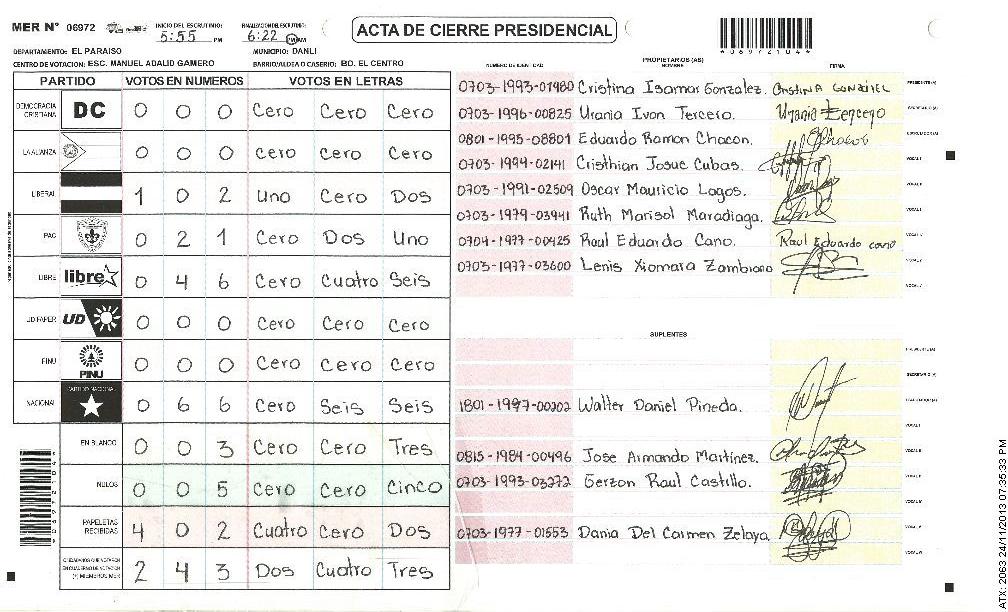 MER N° 06972
INICIO DEL ESCRUTINIO: 5:55 PM
FINALIZACION DEL ESCRUTINIO: 6:22 PM AM
ACTA DE CIERRE PRESIDENCIAL
069721044
DEPARTAMENTO: EL PARAISO
MUNICIPIO: DANLI
CENTRO DE VOTACION: ESC. MANUEL ADALID GAMERO
BARRIO/ALDEA O CASERIO: BO. EL CENTRO
PARTIDO VOTOS EN NUMEROS VOTOS EN LETRAS
DEMOCRACIA CRISTIANA DC 0 0 0 Cero Cero Cero
LA ALIANZA 0 0 0 Cero Cero Cero
LIBERAL 1 0 2 Uno Cero Dos
PAC 0 2 1 Cero Dos Uno
LIBRE libre 0 4 6 Cero Cuatro Seis
UD FAPER UD 0 0 0 Cero Cero Cero
PINU PINU 0 0 0 Cero Cero Cero
NACIONAL PARTIDO NACIONAL 0 6 6 Cero Seis Seis
EN BLANCO 0 0 3 Cero Cero Tres
NULOS 0 0 5 Cero Cero Cinco
PAPELETAS RECIBIDAS 4 0 2 Cuatro Cero Dos
CIUDADANOS QUE VOTARON EN CUADERNO DE VOTACION (+) MIEMBROS MER 2 4 3 Dos Cuatro Tres
PROPIETARIOS (AS)
NUMERO DE IDENTIDAD NOMBRE FIRMA
0703-1993-01980 Cristina Isamar Gonzalez. CRISTINA GONZALEZ PRESIDENTE(A)
0703-1996-00825 Urania Ivon Tercero. Urania Tercero SECRETARIO(A)
0801-1995-08801 Eduardo Ramon Chacon. Chacon ESCRUTADOR(A)
0703-1994-02141 Cristhian Josue Cubas. VOCAL I
0703-1991-02509 Oscar Mauricio Lagos. VOCAL II
0703-1979-03941 Ruth Marisol Maradiaga.
0704-1977-00425 Raul Eduardo Cano. Raul Eduardo cano
0703-1977-03600 Lenis Xiomara Zambrano
SUPLENTES
PRESIDENTE(A)
SECRETARIO(A)
1801-1997-00202 Walter Daniel Pineda. ESCRUTADOR(A)
VOCAL I
0815-1984-00496 Jose Armando Martinez.
0703-1993-03272 Gerzon Raul Castillo.
0703-1977-01553 Dania Del Carmen Zelaya
ATX: 2063 24/11/2013 07:35:33 PM